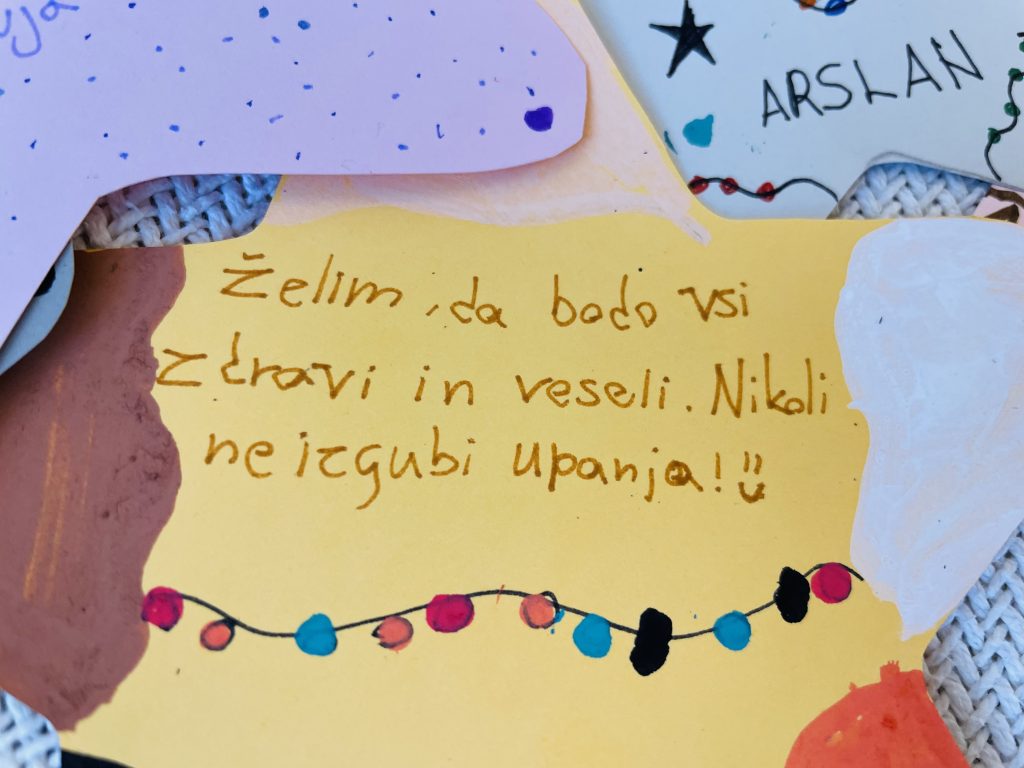 ARSLAN
Želim, da bodo vsi
zdravi in veseli. Nikoli
ne izgubi upanja!